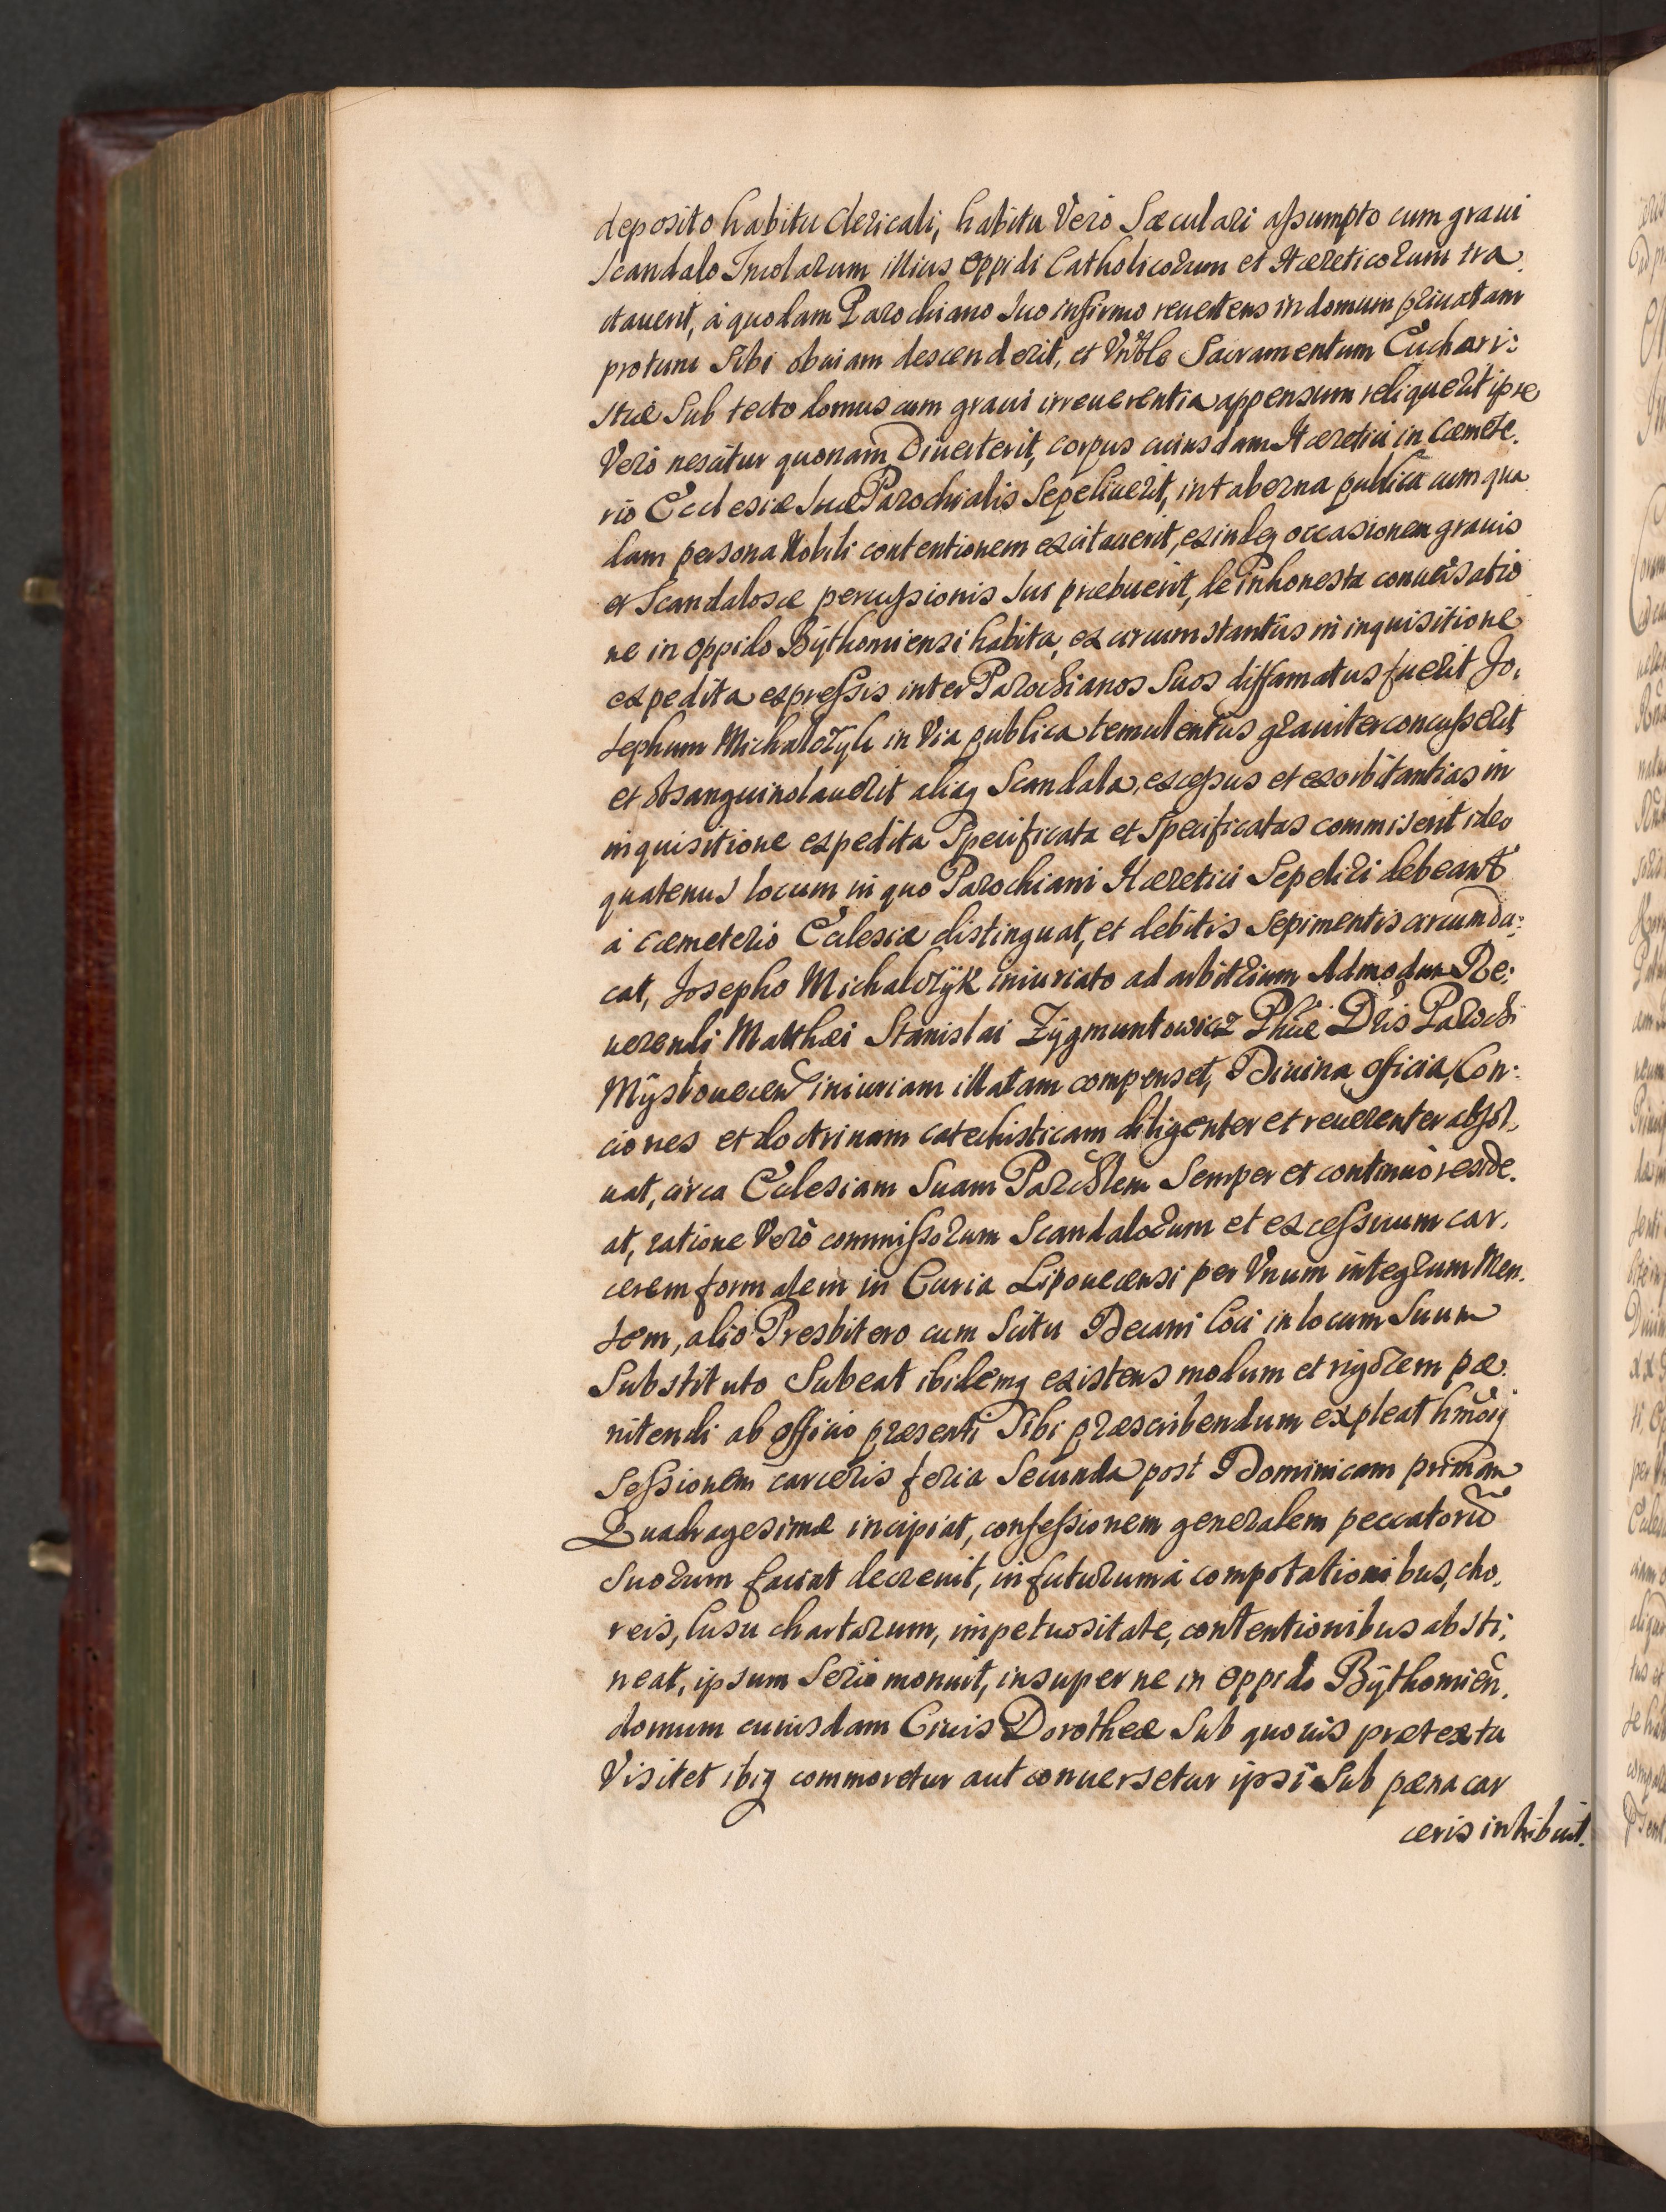 deposito habitu Clericali, habitu Vero Sæculari assumpto cum graui
scandalo Incolarum illius oppidi Catholicorum et Hæreticorum tra
ctauerit, à quodam Parochiano suo infirmo reuertens in domum priuatam
protunc Sibi obuiam descenderit, et Vnble Sacramentum Euchari:
stiæ Sub tecto domus cum graui irreuerentia appensum reliquerit ipse
Verò nescitur quonam Diuerterit, corpus cuiusdam Hæretici in Cæmete.
rio Ecclesiæ suæ Parochialis Sepeliuerit, in taberna publica cum qua
dam persona Nobili contentionem excitauerit, exindeq occasionem grauis
et Scandalosæ percussionis sui præbuerit, de inhonesta conuersatio
ne in oppido Bÿthomiensi habita, ex circumstantiis in inquisitione
expedita expressis inter Parochianos Suos diffamatus fuerit Jo,
sephum Michalczyk in Via publica temulentus grauiter concusserit
et obsanguinolauerit aliaq Scandala, excessus et exorbitantias in
inquisitione expedita Specificata et Specificatas commiserit ideo
quatenus locum in quo Parochiani Hæretici Sepeliri debeant
à cæmeterio Ecclesiæ distinguat, et debitis Sepimentis circumdu:
cat, Josepho Michalczÿk iniuriato ad arbitrium Admodum Re:
uerendi Matthæi Stanislai Zÿgmuntowicz Phiæ Dris Parochi
Mÿslouecen iniuriam illatam compenset, Diuina officia, Con:
ciones et doctrinam catechisticam diligenter et reuerenter absol,
uat, circa Ecclesiam Suam Parochlem Semper et continuò reside.
at, ratione Verò commissorum Scandalorum et excessuum car.
cerem formalem in Curia Lipouecensi per Vnum integrum Men.
sem, alio Presbitero cum Scitu Decani loci in locum Suum
Substituto Subeat ibidemq existens modum et rigorem pæ.
nitendi ab officio præsenti Sibi præscribendum expleat hmoiq
Sessionem carceris feria Secunda post Dominicam primam
Quadragesimæ incipiat, confessionem generalem peccatorũ
Suorum faciat decreuit, in futurum à compotationibus, cho.
reis, lusu chartarum, impetuositate, contentionibus absti,
neat, ipsum Seriò monuit, insuper ne in oppido Bÿthomien.
domum cuiusdam Ciuis Dorotheæ Sub quouis prætextu
Visitet ibiq commoretur aut conuersetur ipsi Sub pæna car
ceris inhibuit.